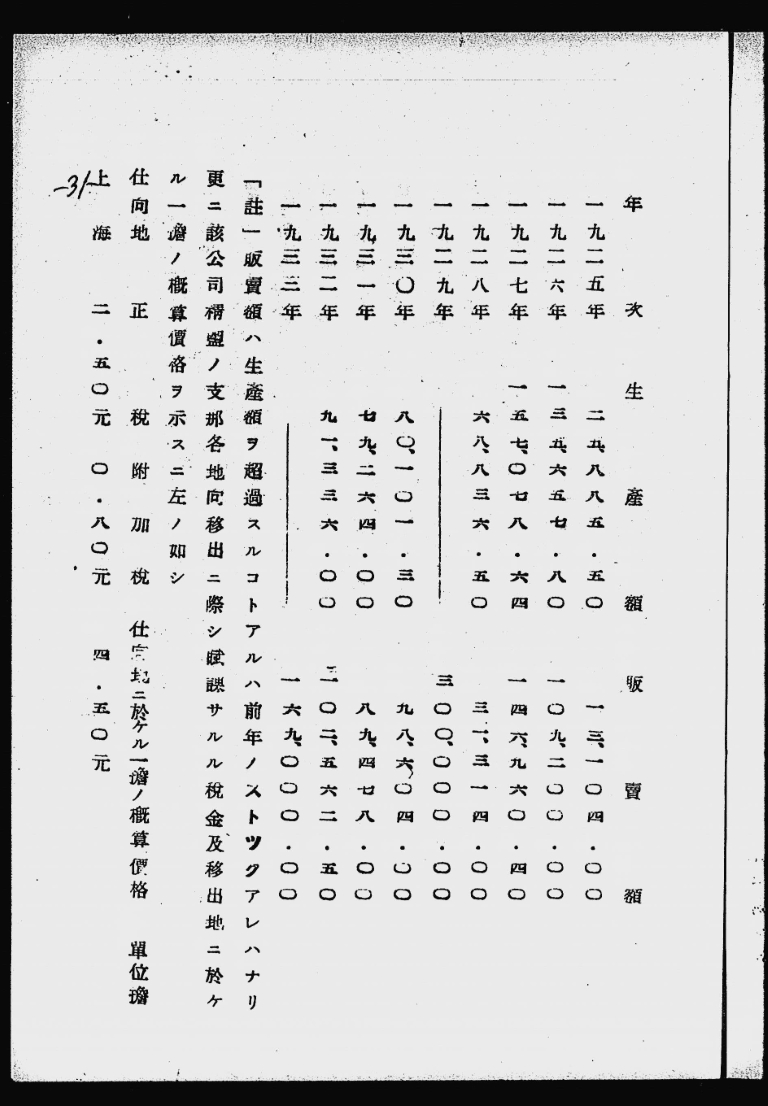 年次　生產額　販賣額
一九二五年　二五、八八五．五〇　一三、一〇四．〇〇
一九二六年　一三五、六五七．八〇　一〇九、二〇〇．〇〇
一九二七年　一五七、〇七八．六四　一四六、九六〇．四〇
一九二八年　六八、八三六．五〇　三一、三一四．〇〇
一九二九年　――――　三〇〇、〇〇〇．〇〇
一九三〇年　八〇、一〇一．三〇　九八、六〇四．〇〇
一九三一年　七九、二六四．〇〇　八九、四七八．〇〇
一九三二年　九一、三三六．〇〇　一〇二、五六二．五〇
一九三三年　――――　一六九、〇〇〇．〇〇
「註」販賣額ハ生產額ヲ超過スルコトアルハ前年ノストツクアレハナリ
更ニ該公司精盬ノ支那各地向移出ニ際シ賦課サルル稅金及移出地ニ於ケ
ル一擔ノ概算價格ヲ示スニ左ノ如シ
仕向地　正稅　附加稅　仕向地ニ於ケル一擔ノ概算價格　單位擔
上海　二．五〇元　〇．八〇元　四．五〇元
-31-